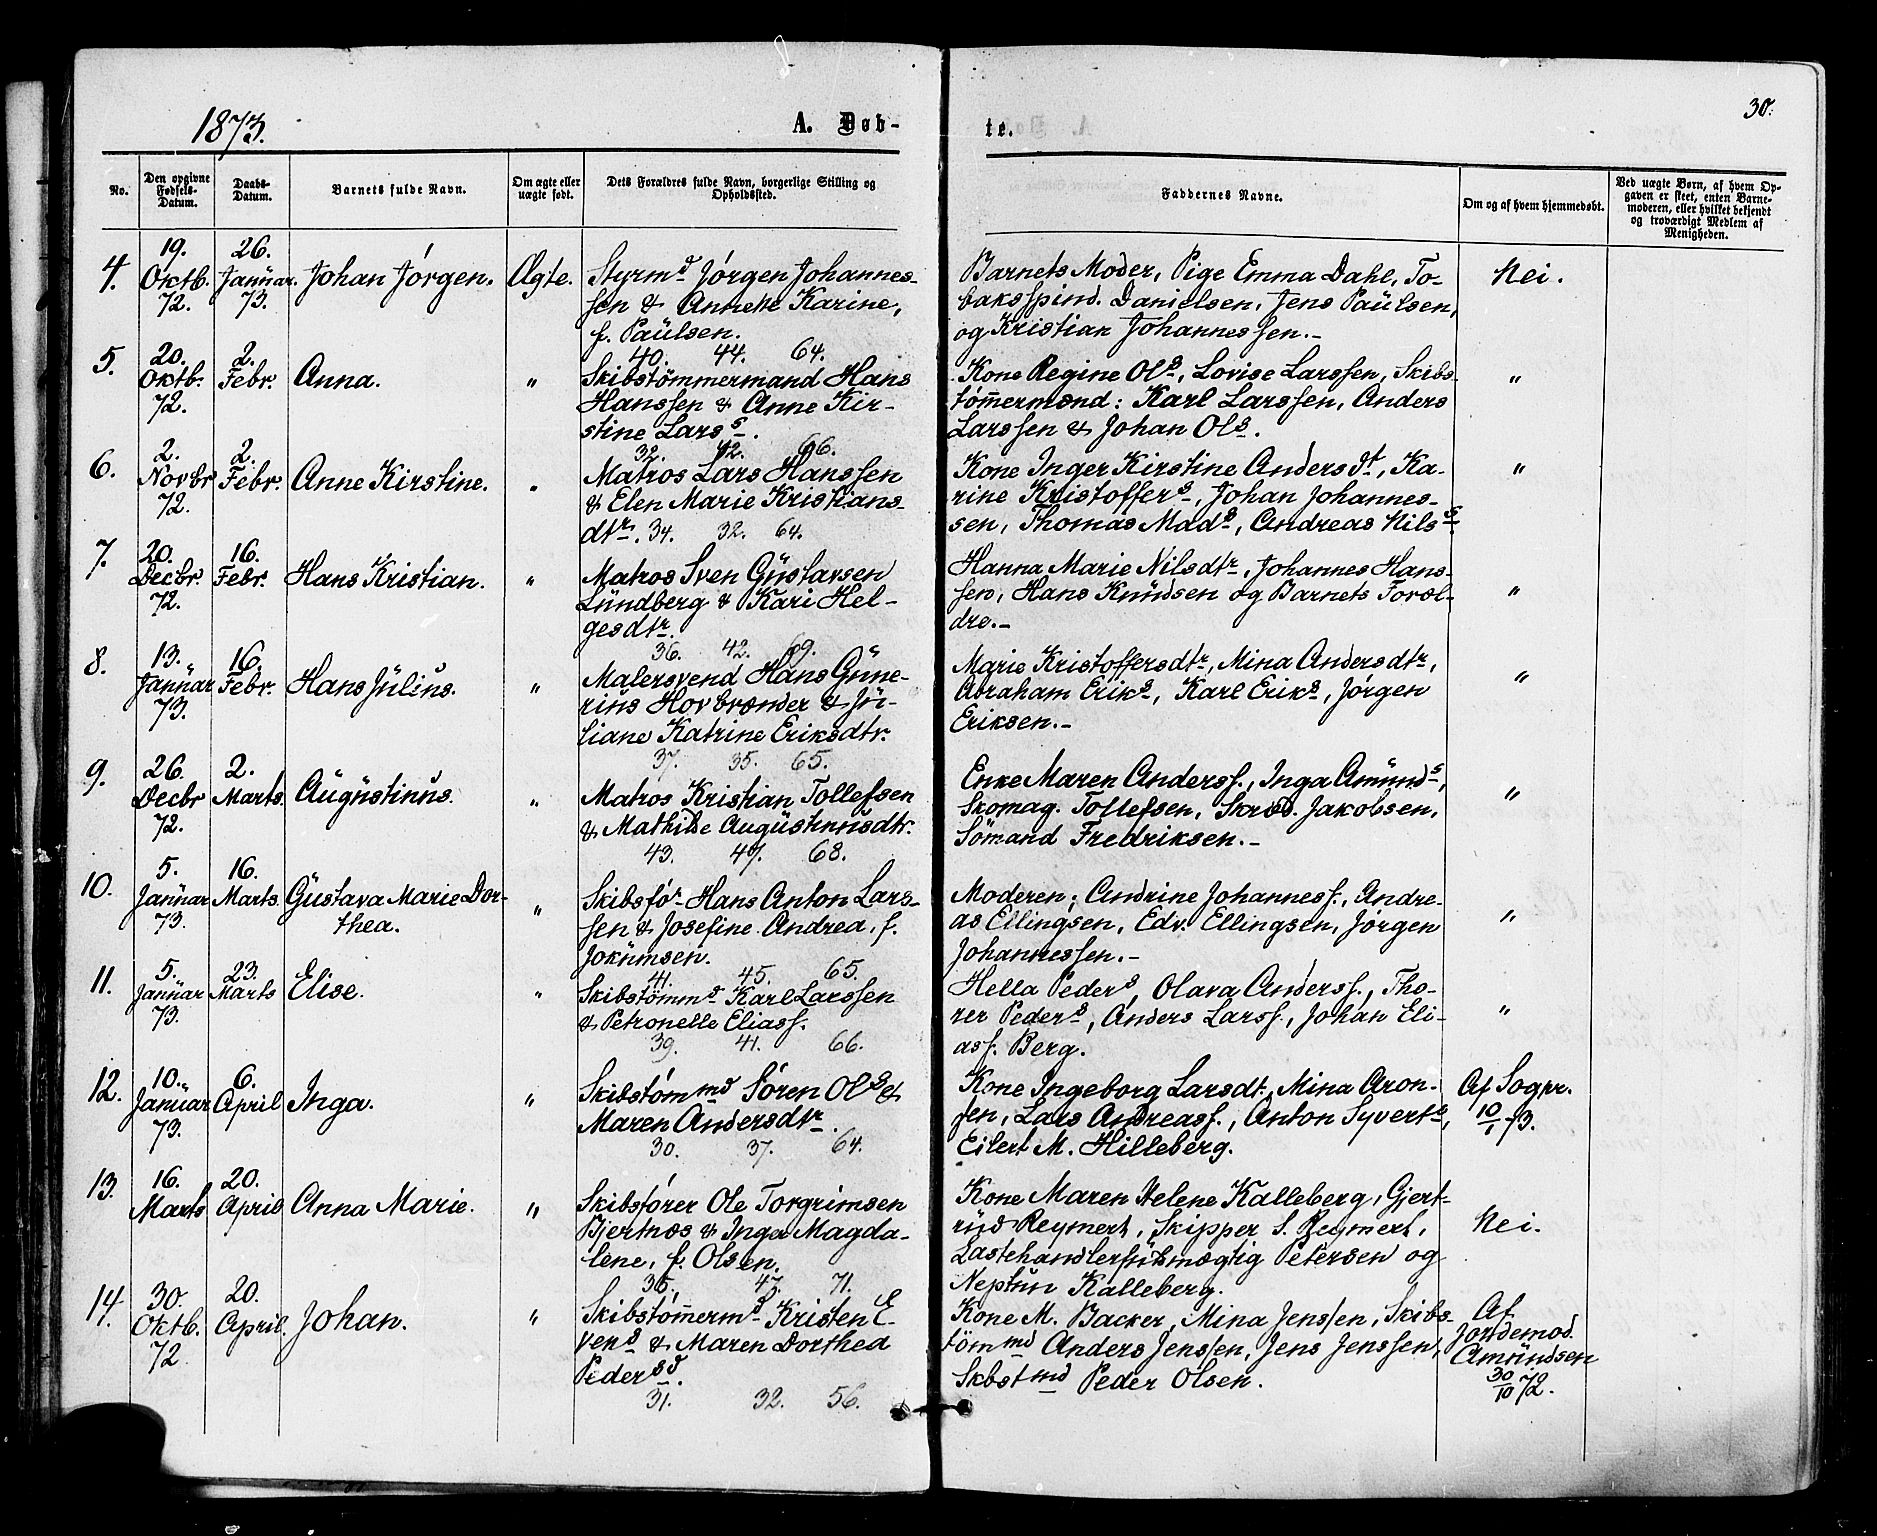 1873.
A. Døb-
te.
30.
No.
Den opgivne
Fødsels-
Datum.
Daabs-
Datum.
Barnets fulde Navn.
Om ægte eller
uægte født.
Dets Forældres fulde Navn, borgerlige Stilling og
Opholdssted.
Faddernes Navne.
Om og af hvem hjemmedøbt.
Ved uægte Børn, af hvem Op-
gaven er skeet, enten Barne-
moderen, eller hvilket bekjendt
og troværdigt Medlem af
Menigheden.
4.
19.
Oktb.
72.
26.
Januar.
73.
Johan Jørgen.
Ægte.
Styrmd Jørgen Johannes-
sen & Annette Karine,
f. Paulsen.
40. 44. 64.
Barnets Moder, Pige Emma Dahl, To-
baksspind. Danielsen, Jens Paulsen,
og Kristian Johannessen.-
Nei.
5.
20.
Oktb.
72.
2.
Febr.
Anna.
"
Skibstømmermand Hans
Hanssen & Anne Kir-
stine Larss.
32. 42. 66.
Kone Regine Ols, Lovise Larssen, Skibs-
tømmermænd: Karl Larssen, Anders
Larssen & Johan Ols.
"
6.
2.
Novbr
72.
2.
Febr.
Anne Kirstine.
"
Matros Lars Hanssen
& Elen Marie Kristians-
dtr. 34. 32. 64.
Kone Inger Kirstine Andersdt, Ka-
rine Kristoffers, Johan Johannes-
sen, Thomas Mads, Andreas Nilss.
"
7.
20.
Decbr.
72.
16.
Febr.
Hans Kristian.
"
Matros Sven Gustavsen
Lundberg & Kari Hel-
gesdtr.
36. 42. 69.
Hanna Marie Nilsdtr, Johannes Hans-
sen, Hans Knudsen og Barnets Foræl-
dre.-
"
8.
13.
Januar
73.
16.
Febr.
Hans Julius.
"
Malersvend Hans Gune-
rius Hovbrænder & Ju-
liane Katrine Eriksdtr.
37. 35. 65.
Marie Kristoffersdtr, Mina Andersdtr,
Abraham Eriks, Karl Eriks, Jørgen
Eriksen.-
"
9.
26.
Decbr
72.
2.
Marts.
Augustinus.
"
Matros Kristian Tollefsen
& Mathilde Augustinusdtr.
43. 47. 68.
Enke Maren Anderss., Inga Amunds,
Skomag. Tollefsen, Skræd. Jakobsen,
Sømand Fredriksen.-
"
10.
5.
Januar
73.
16.
Marts.
Gustava Marie Dor-
thea.
"
Skibsfør Hans Anton Lars-
sen & Josefine Andrea, f.
Jokumsen.
41. 45. 65.
Moderen; Andrine Johanness., Andre-
as Ellingsen, Edv. Ellingsen, Jørgen
Johannessen.-
"
11.
5.
Januar
73.
23.
Marts
Elise.
"
Skibstømmd Karl Larssen
& Petronelle Eliass.
39. 41. 66.
Hella Peders, Olava Anderss., Tho-
rer Peders, Anders Larss., Johan Eli-
ass. Berg.
"
12.
10.
Januar
73.
6.
April
Inga.
"
Skibstømmd Søren Ols &
Maren Andersdtr.
30. 37. 64.
Kone Ingeborg Larsdt, Mina Aron-
sen, Lars Andreass., Anton Syverts,
Eilert M. Hilleberg.
Af Sogpr.
10/1 73.
13.
16.
Marts
20.
April
Anna Marie.
"
Skibsfører Ole Torgrimsen
Bjertnæs & Inga Magda-
lene, f. Olsen.
35. 47. 71.
Kone Maren Helene Kalleberg, Gjert-
rud Reymert, Skipper S. Reymert,
Lastehandlerfuldmægtig Petersen og
Neptun Kalleberg.
Nei.
14.
30.
Oktb.
72.
20.
April.
Johan.
"
Skibstømmermd Kristen E-
vens & Maren Dorthea
Pedersd.
31. 32. 56.
Kone M. Backer, Mina Jenssen, Skibs-
tømmd Anders Jenssen, Jens Jenssen,
Skbstmd Peder Olsen.
Af
Jordemod.
Amundsen
30/10 72.